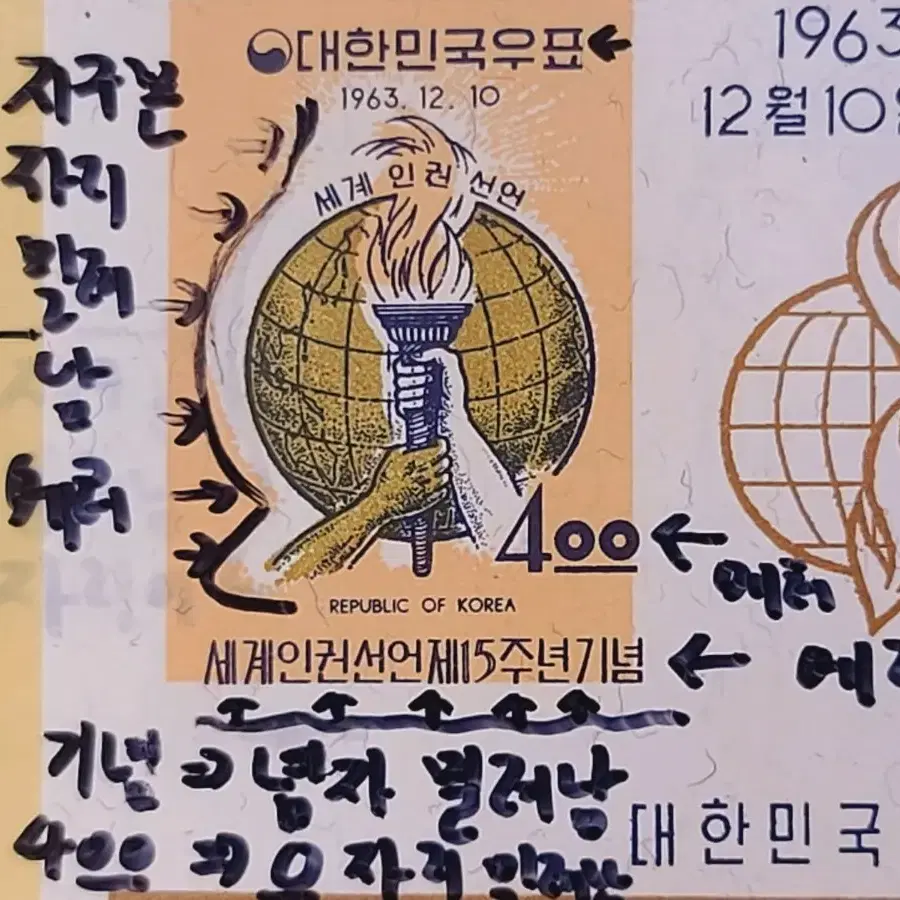 대한민국우표
1963. 12. 10
세계 인권 선언
4 00
REPUBLIC OF KOREA
세계인권선언제15주년기념
1963
12월 10일
대한민국
지구본
자리
밀려
남
에러
에러
에러
기념 → 념자 밀려남
400 → 0 자리